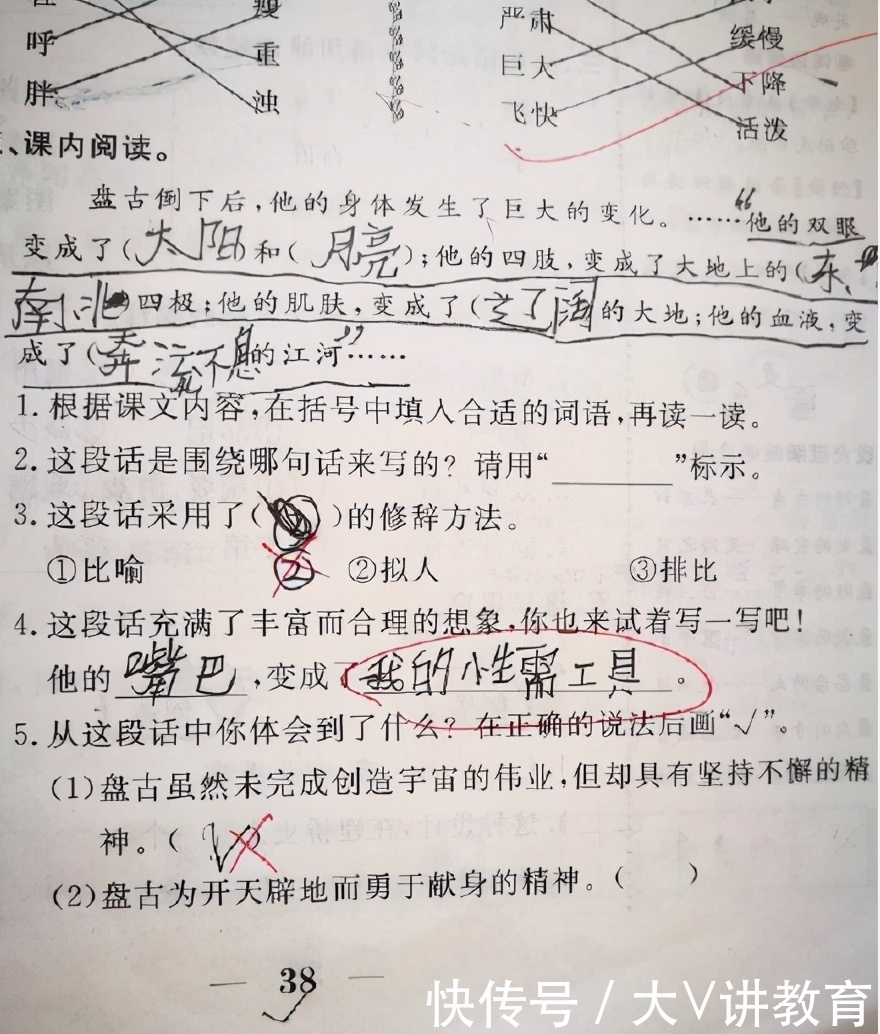 瘦
呼 重
胖 浊
严肃
巨大 缓慢
飞快 下降
活泼
、课内阅读。
盘古倒下后,他的身体发生了巨大的变化。……“他的双眼
变成了(太阳和(月亮);他的四肢,变成了大地上的(东、
南、北)四极;他的肌肤,变成了(辽阔的大地;他的血液,变
成了(奔流不息的江河”……
1.根据课文内容,在括号中填入合适的词语,再读一读。
2.这段话是围绕哪句话来写的?请用“______”标示。
3.这段话采用了( )的修辞方法。
①比喻 ② ②拟人 ③排比
4.这段话充满了丰富而合理的想象,你也来试着写一写吧!
他的嘴巴,变成了我的小性需工具。
5.从这段话中你体会到了什么?在正确的说法后画“√”。
(1)盘古虽然未完成创造宇宙的伟业,但却具有坚持不懈的精
神。(√)
(2)盘古为开天辟地而勇于献身的精神。( )
— 38 —
快传号 / 大V讲教育